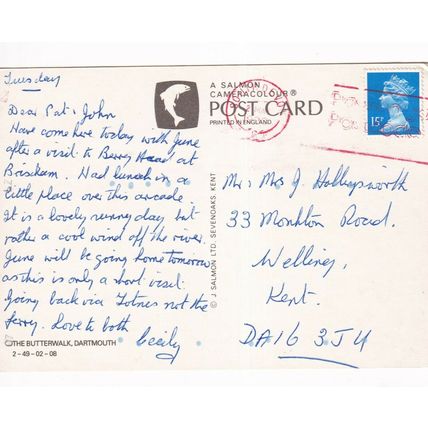 Tuesday
Dear Pat & John
Have come here today with June
after a visit to Berry Head at
Brixham. Had lunch in a
little place over this arcade.
It is a lovely sunny day but
rather a cool wind off the river.
June will be going home tomorrow
as this is only a short visit.
Going back via Totnes not the
ferry. Love to both
Cecily
THE BUTTERWALK, DARTMOUTH
2-49-02-08
A SALMON
CAMERACOLOUR®
POST CARD
PRINTED IN ENGLAND
© J SALMON LTD. SEVENOAKS, KENT
15P
Mr & Mrs J Hollingsworth
33 Monkton Road.
Welling,
Kent.
DA16 3JU